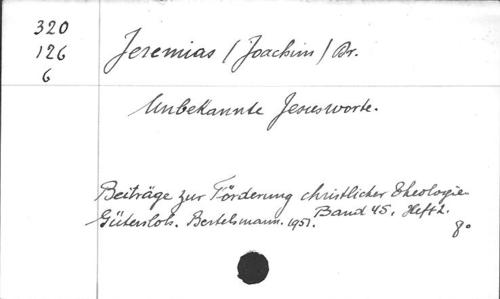 320
126
6
Jeremias / Joachim / Dr.
Unbekannte Jesusworte.
Beiträge zur Förderung christlicher Theologie
Band 45, Heft 2.
Gütersloh. Bertelsmann. 1951.
8°